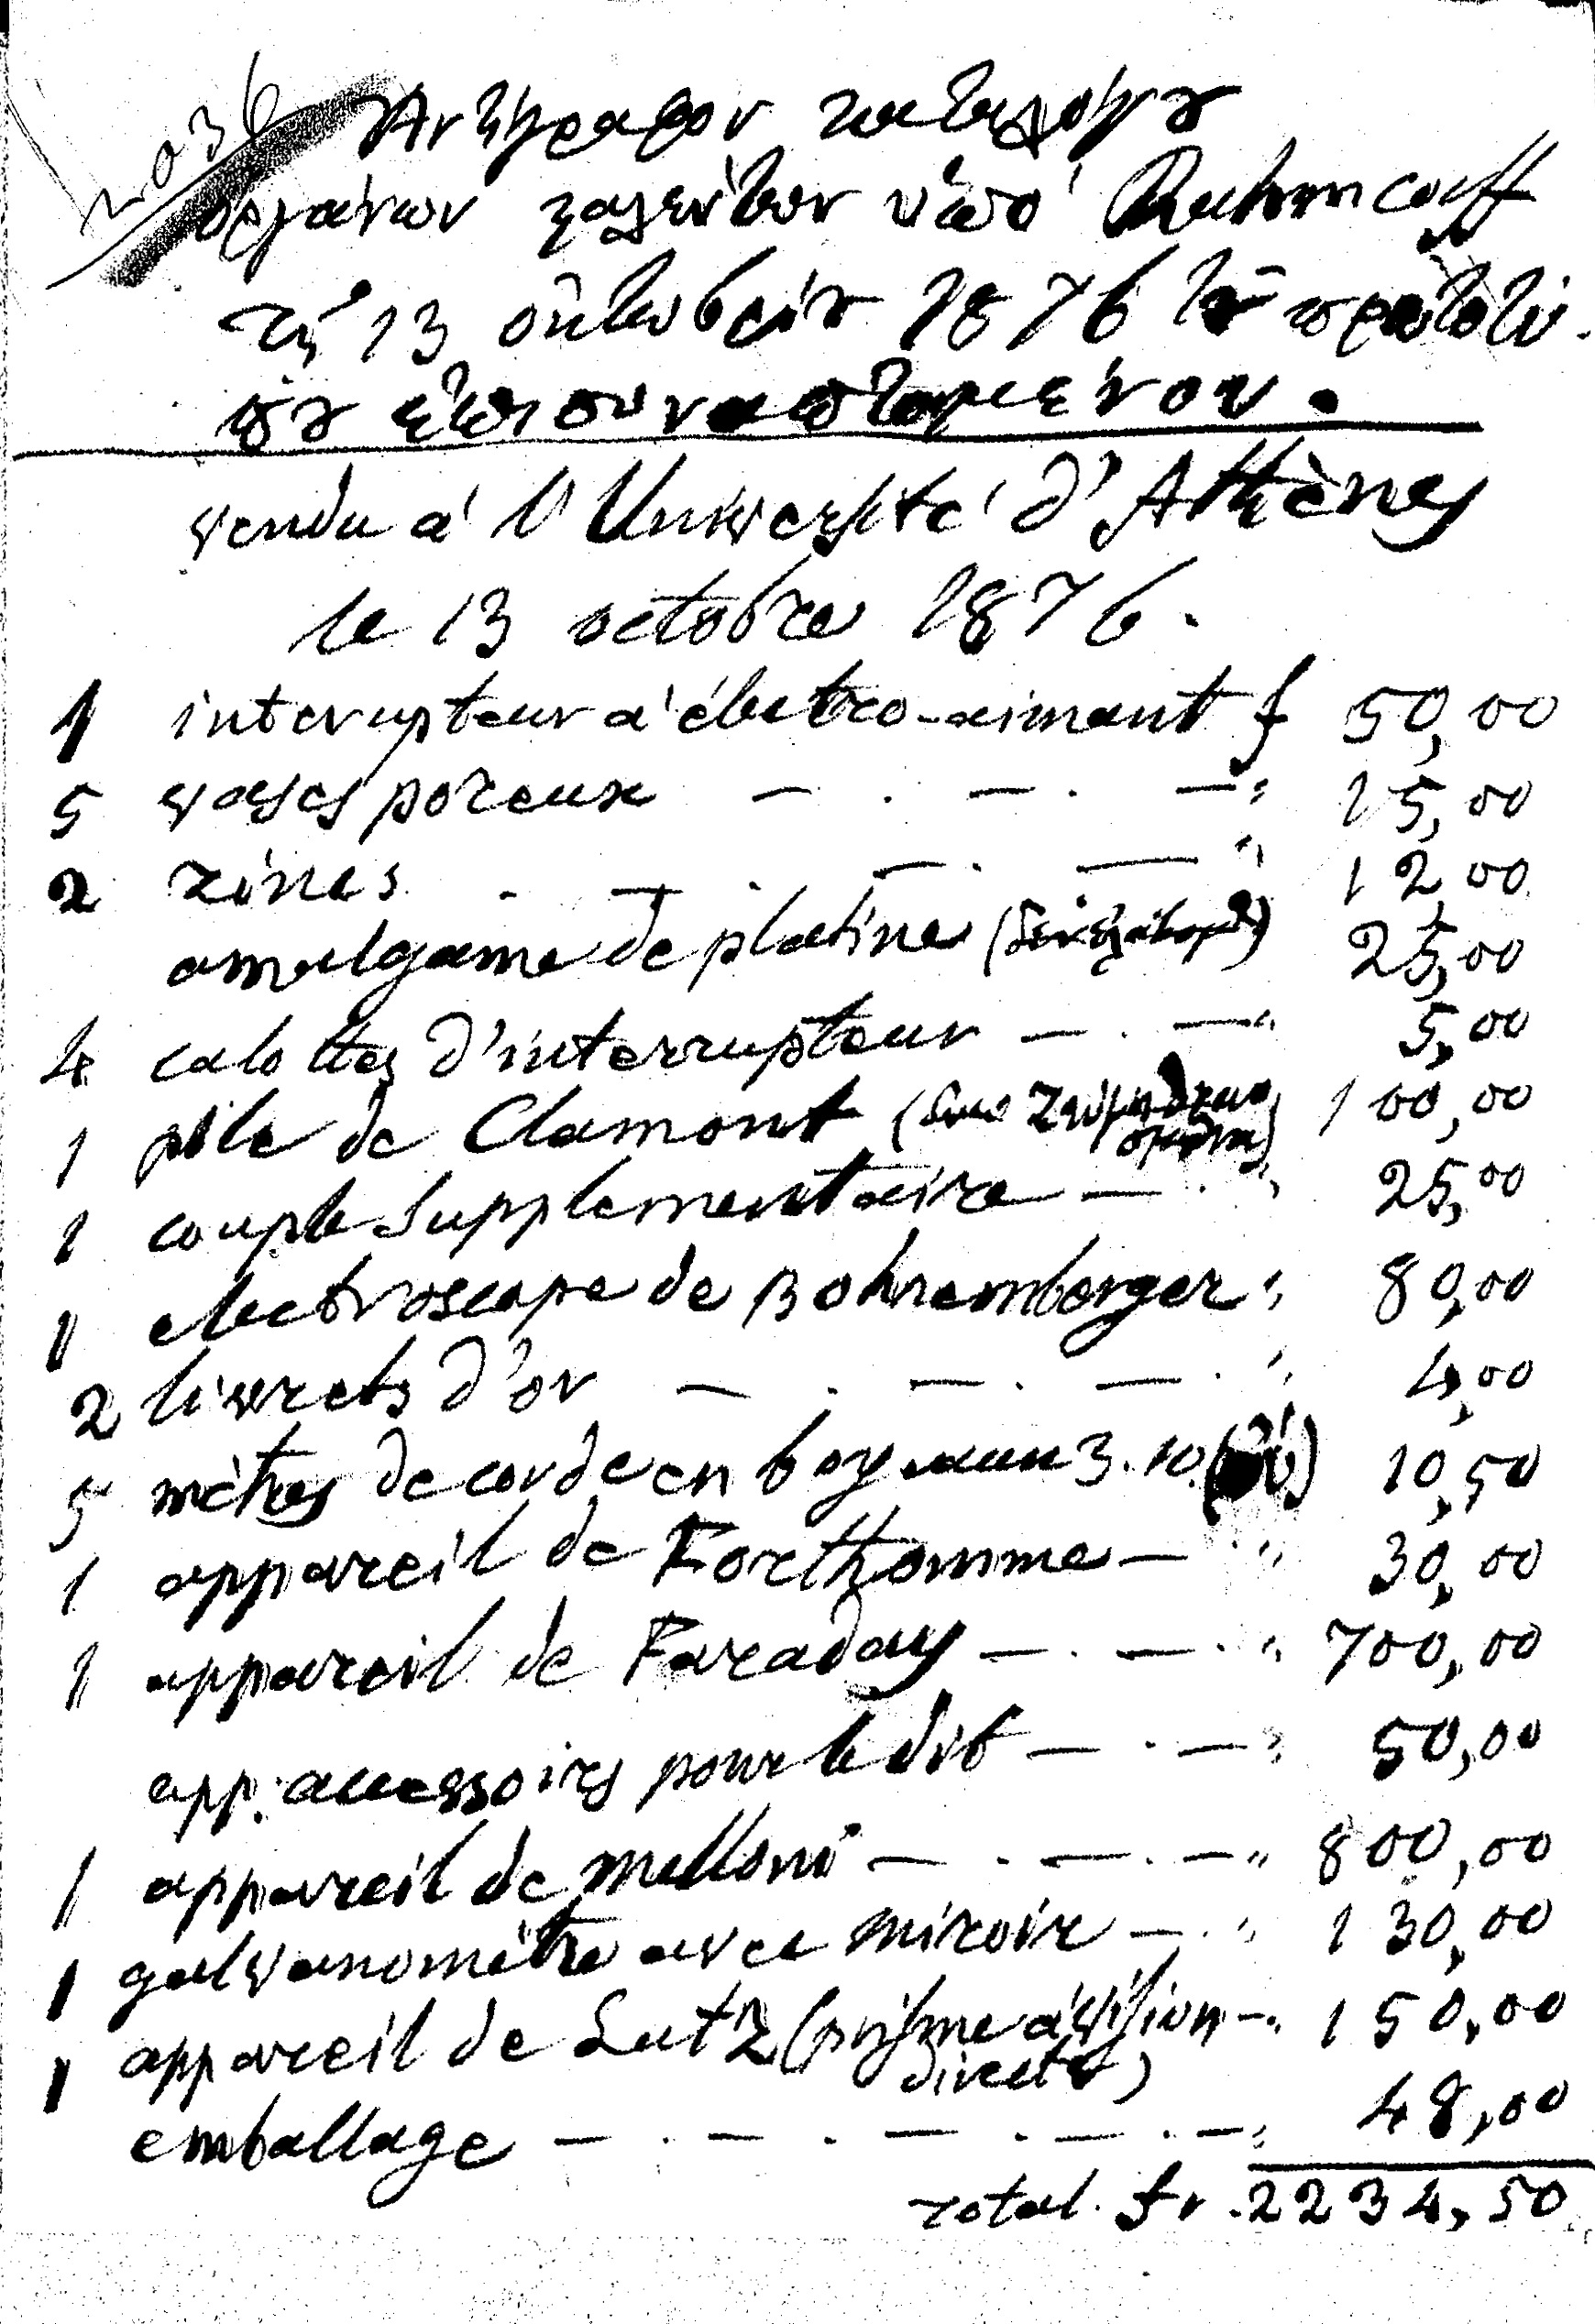 2036
Ἀντίγραφον καταλόγου
ὀργάνων σταλέντων ὑπὸ Ruhmcorff
τῇ 13 ὀκτωβρίου 1876 τοῦ πρωτοτύ-
που ἐπισυναπτομένου.
vendu à l'Université d'Athènes
le 13 octobre 1876.
1 interupteur a' électro-aimant f 50,00
5 vases poreux — . — . — " 15,00
2 zincs . — . — . — " 12,00
amalgame de platine 25,00
4 calottes d'interrupteur — . — " 5,00
1 pile de Clamont 100,00
1 couple supplementaire — . " 25,00
1 electroscope de Bohnemberger " 80,00
2 livrets d'or — . — . — . " 4,00
5 mètres de corde en boyaux 3.10 10,50
1 appareil de Forthomme — " 30,00
1 appareil de Faraday — . — . " 700,00
app. accessoirs pour le dit — . — " 50,00
1 appareil de melloni — . — . — " 800,00
1 galvanomètre avec miroir — . " 130,00
1 appareil de Lutz (prisme à vision — . 150,00
directe)
emballage — . — . — . — . — " 48,00
Total. fr. 2234,50